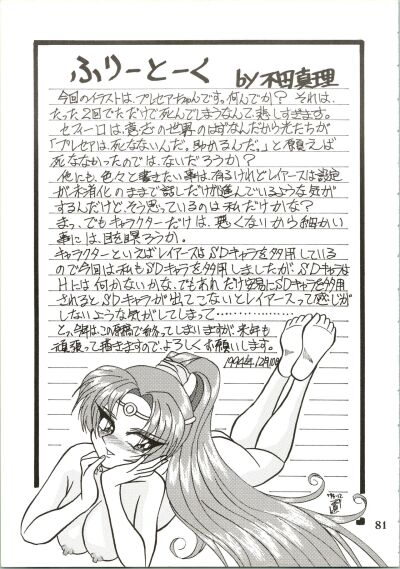 ふりーとーく
by 本田真理
今回のイラストは、プレセアちゃんです。何んでか？それは、
たった2回でただけで死んでしまうなんて悲しすぎます。
セフィーロは、意志の世界のはずなんだから光たちが
「プレセアは、死なないんだ。助かるんだ。」と願えば
死ななかったのでは、ないだろうか？
他にも、色々と書きたい事は、有るけれどレイアースは設定
が未消化のままで話しだけが進んでいるような気が
するんだけど、そう思っているのは私だけかな？
まっ、でもキャラクターだけは、悪くないから細かい
事には、目を瞑ろうか。
キャラクターといえばレイアースはSDキャラを多用している
ので今回は私もSDキャラを多用しましたが、SDキャラは
Hには何かないかな、でもあれだけ安易にSDキャラを多用
されるとSDキャラが出てこないとレイアースって感じが
しないような気がしてしまって……………
とっ、今年は、この原稿で終ってしまいますが、来年も
頑張って描きますので、よろしくお願いします。
1994年12月10日
'94-12
81